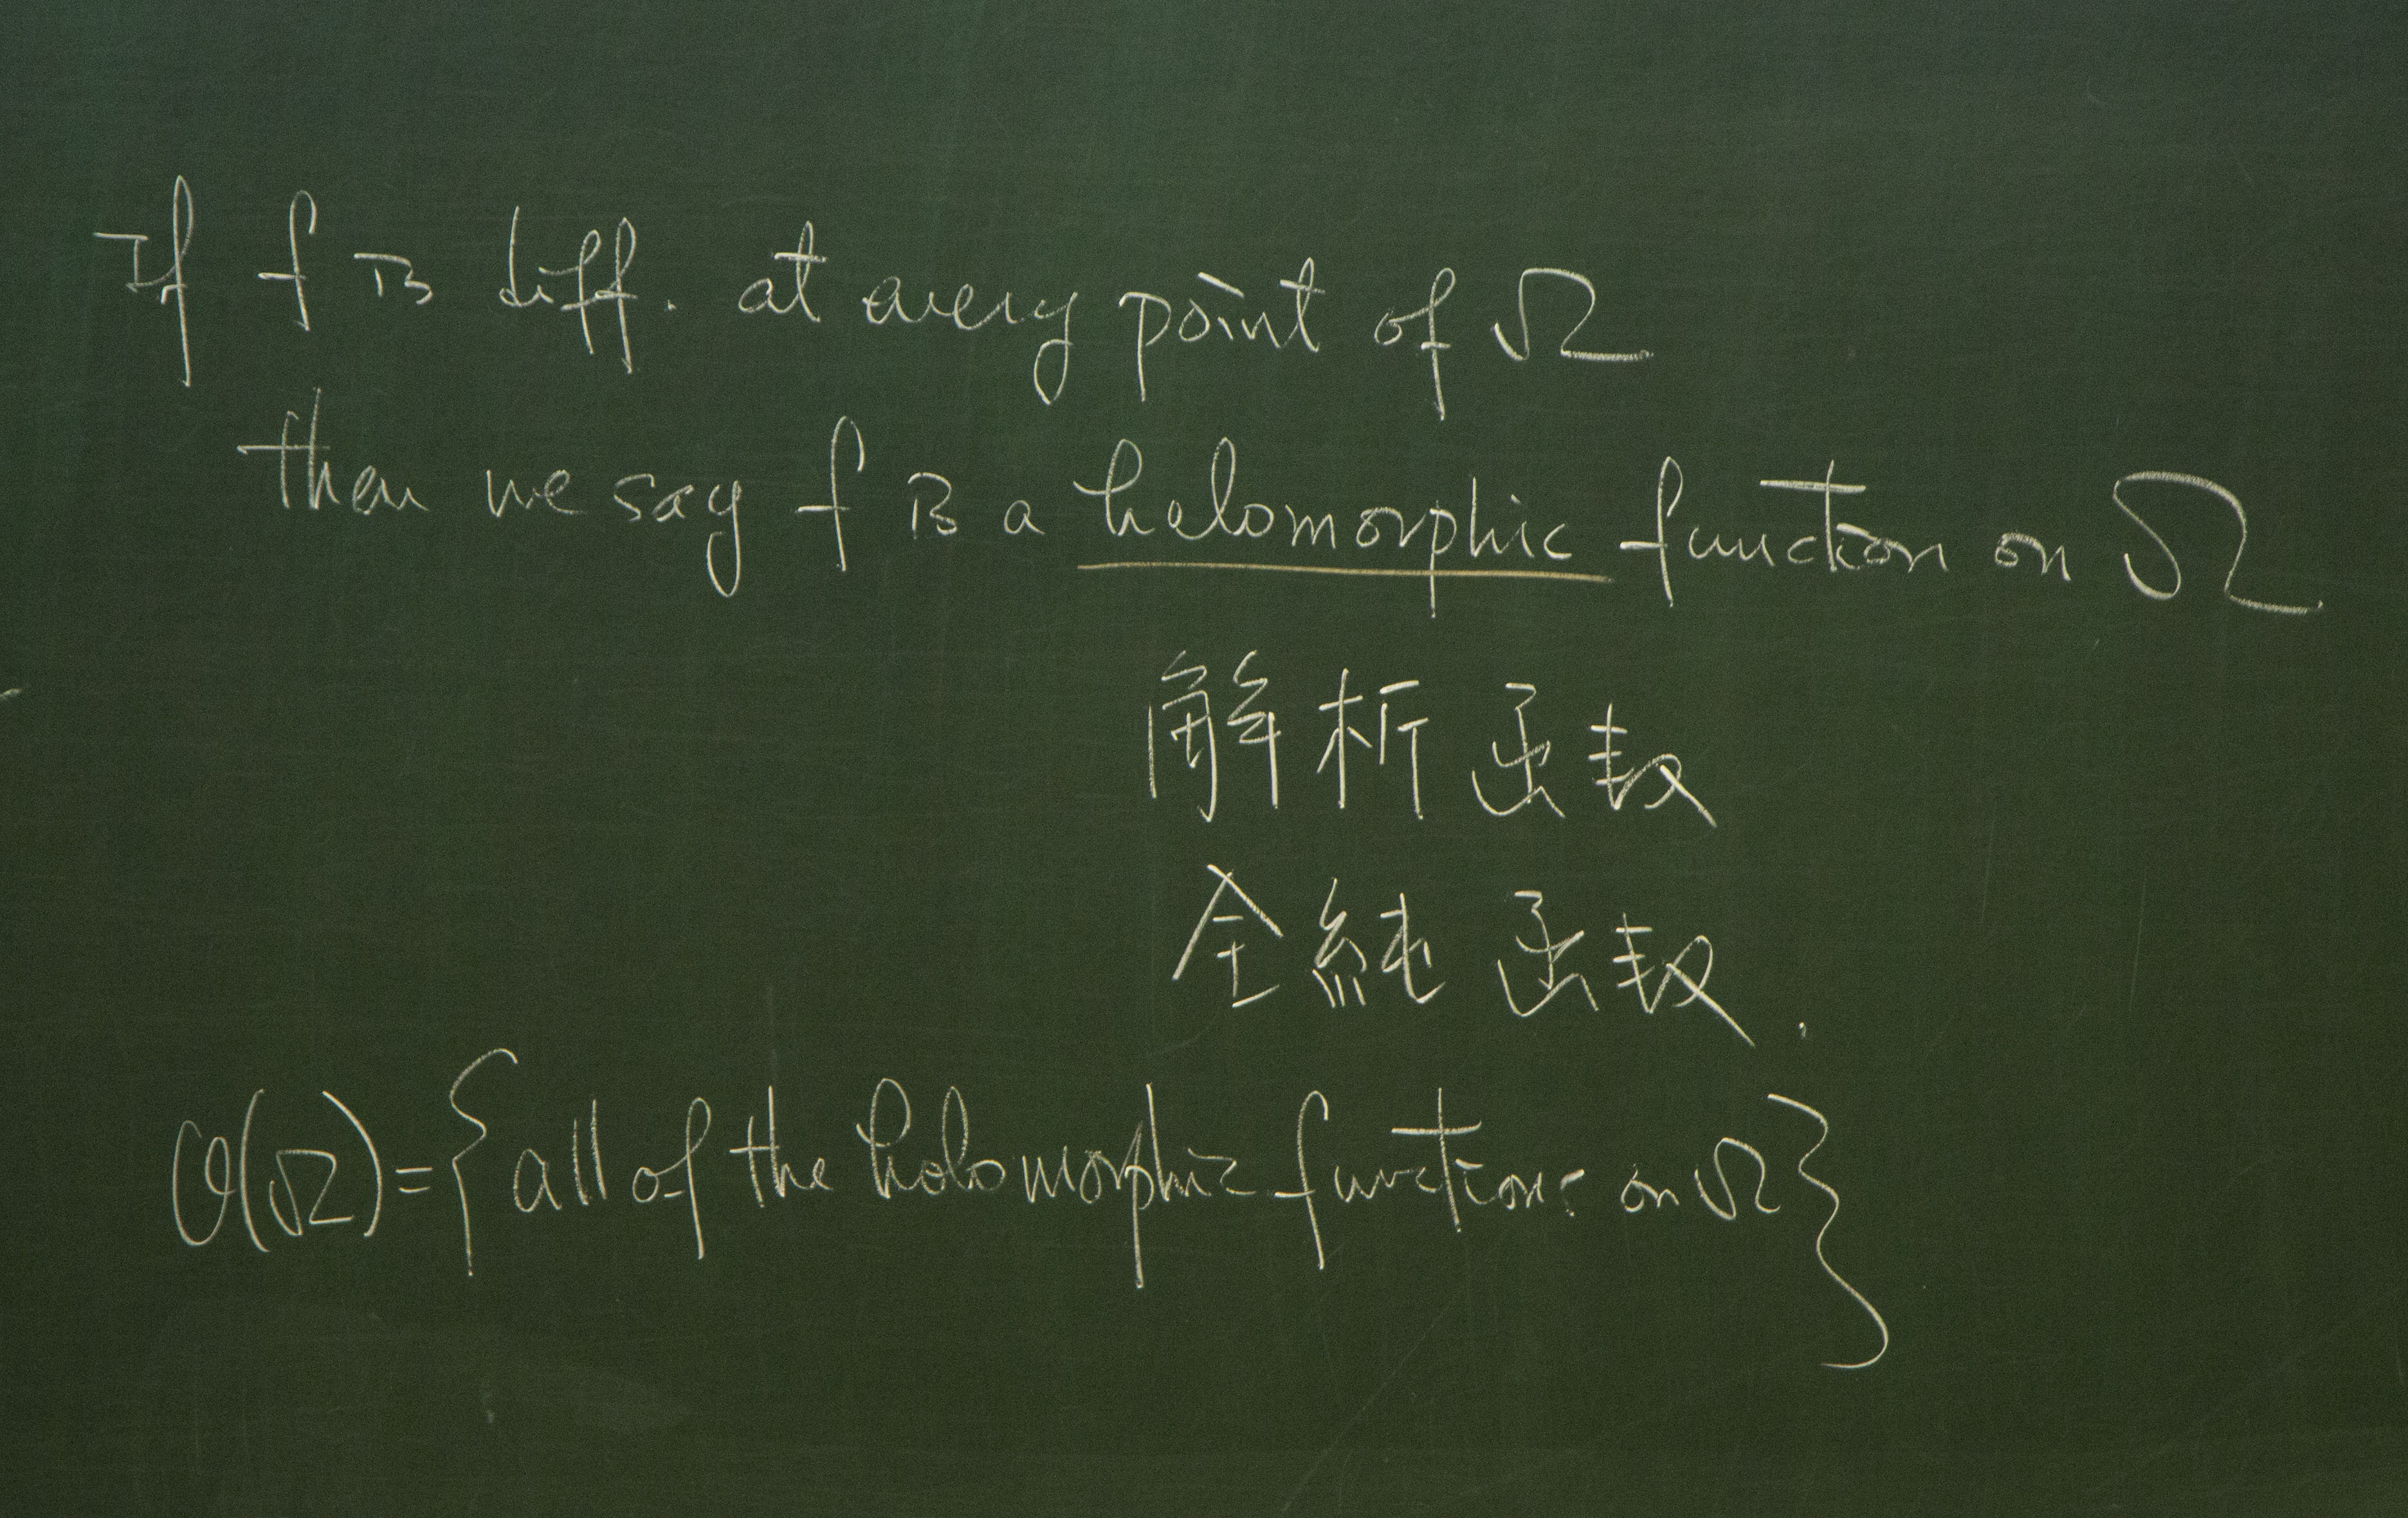 If f is diff. at every point of Ω
then we say f is a holomorphic function on Ω
解析函数
全純函数.
O(Ω)={all of the holomorphic functions on Ω}